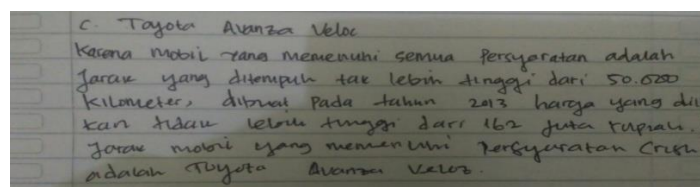 C. Toyota Avanza Veloc
Karena mobil yang memenuhi semua Persyaratan adalah
Jarak yang ditempuh tak lebih tinggi dari 50.000
Kilometer, dibuat Pada tahun 2013 harga yang di
kan tidak lebih tinggi dari 162 Juta rupiah.
Jarak mobil yang memenuhi Persyaratan
adalah Toyota Avanza Veloz.